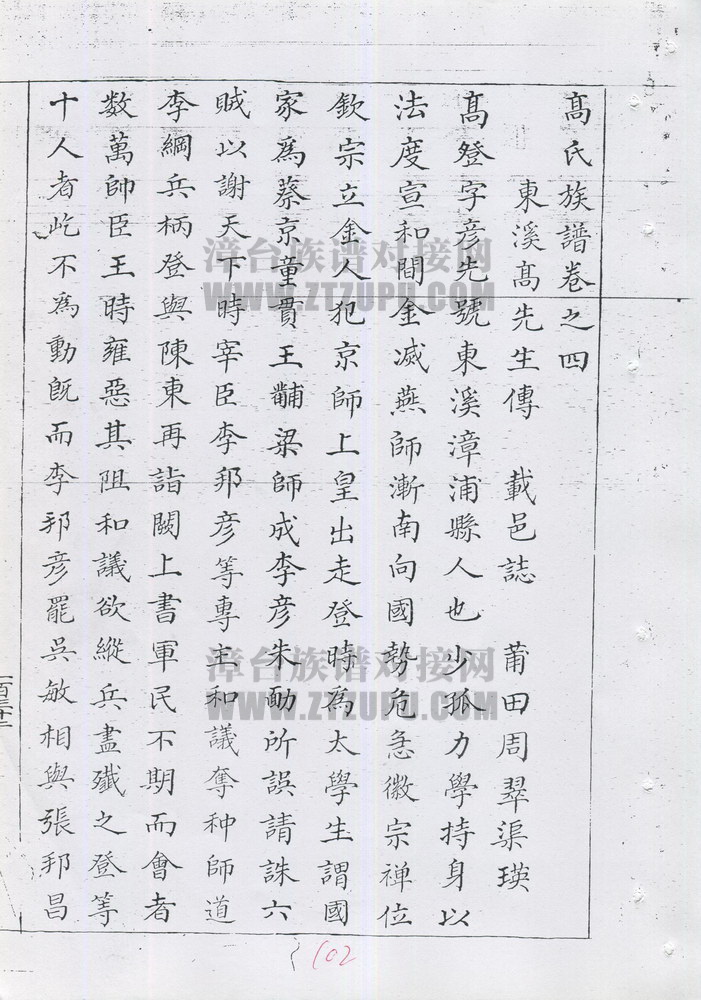 高氏族譜卷之四
東溪高先生傳 載邑誌 莆田周翠渠瑛
高登字彥先號東溪漳浦縣人也少孤力學持身以
法度宣和間金滅燕師漸南向國勢危急徽宗禅位
欽宗立金人犯京師上皇出走登時為太學生謂國
家為蔡京童貫王黼梁師成李彦朱勔所誤請誅六
賊以謝天下時宰臣李邦彦等專主和議奪种師道
李綱兵柄登與陳東再詣闕上書軍民不期而會者
数萬帥臣王時雍惡其阻和議欲縱兵盡殲之登等
十人者屹不為動既而李邦彦罷吳敏相與張邦昌
一百三十二
102
漳台族谱对接网
WWW.ZTZUPU.COM
漳台族谱对接网
WWW.ZTZUPU.COM